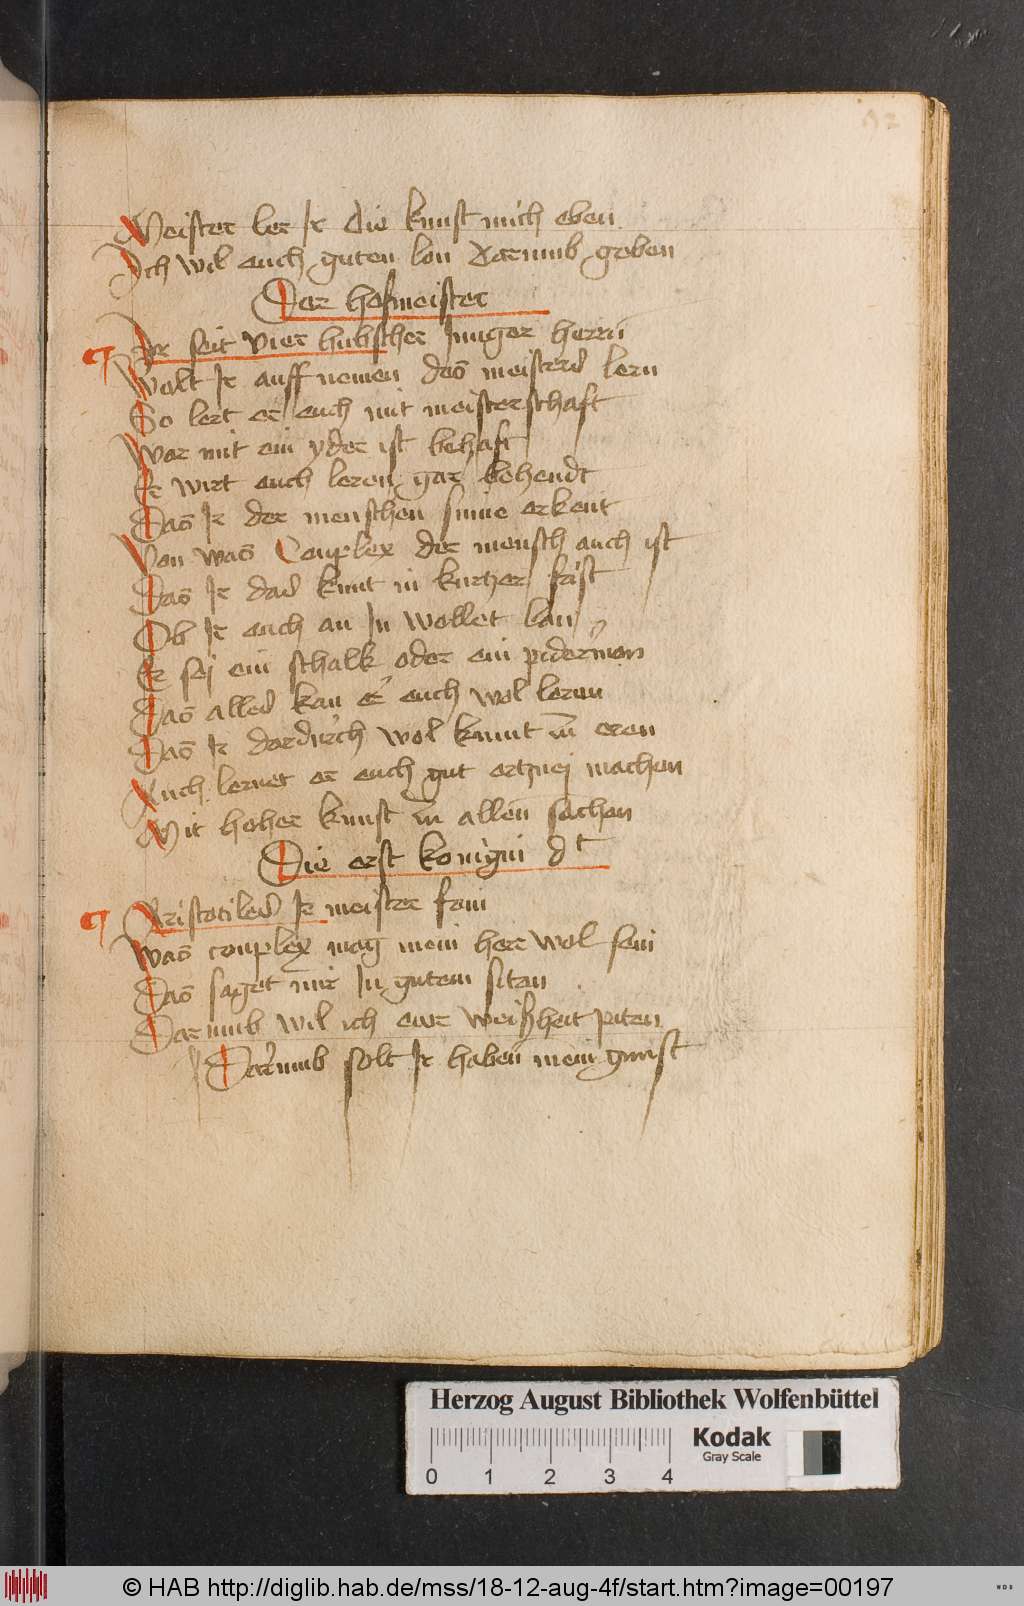 92
Meister ler Ir die kunst mich eben
Ich wil euch guten lon darumb geben
Der hofmeister
Ir seit vier hubscher Junger herrn
Wolt Ir auff nemen des meisters lern
So lert er euch mit meisterschaft
War mit ein yder ist behaft
Er wirt euch leren gar behendt
Das Ir der menschen sinne erkent
Von was Conplex der mensch auch ist
Das Ir das kunt in kurtzer frist
Ob Ir euch an In wollet lan
Er seÿ ein schalk oder ein piderman
Das alles kan er euch wol lernn
Das Ir dardurch wol kumt in eren
Auch lernet er euch gut ertzneÿ machen
Mit hoher kunst in allen sachen
Die erst konigin dt
Aristotiles Ir meister fein
Was conplex mag mein herr wol sein
Das saget mir In gutem siten
Darumb wil ich ewr weißheit piten
Darumb solt Ir haben mein gunst
Herzog August Bibliothek Wolfenbüttel
Kodak
Gray Scale
0 1 2 3 4
© HAB http://diglib.hab.de/mss/18-12-aug-4f/start.htm?image=00197